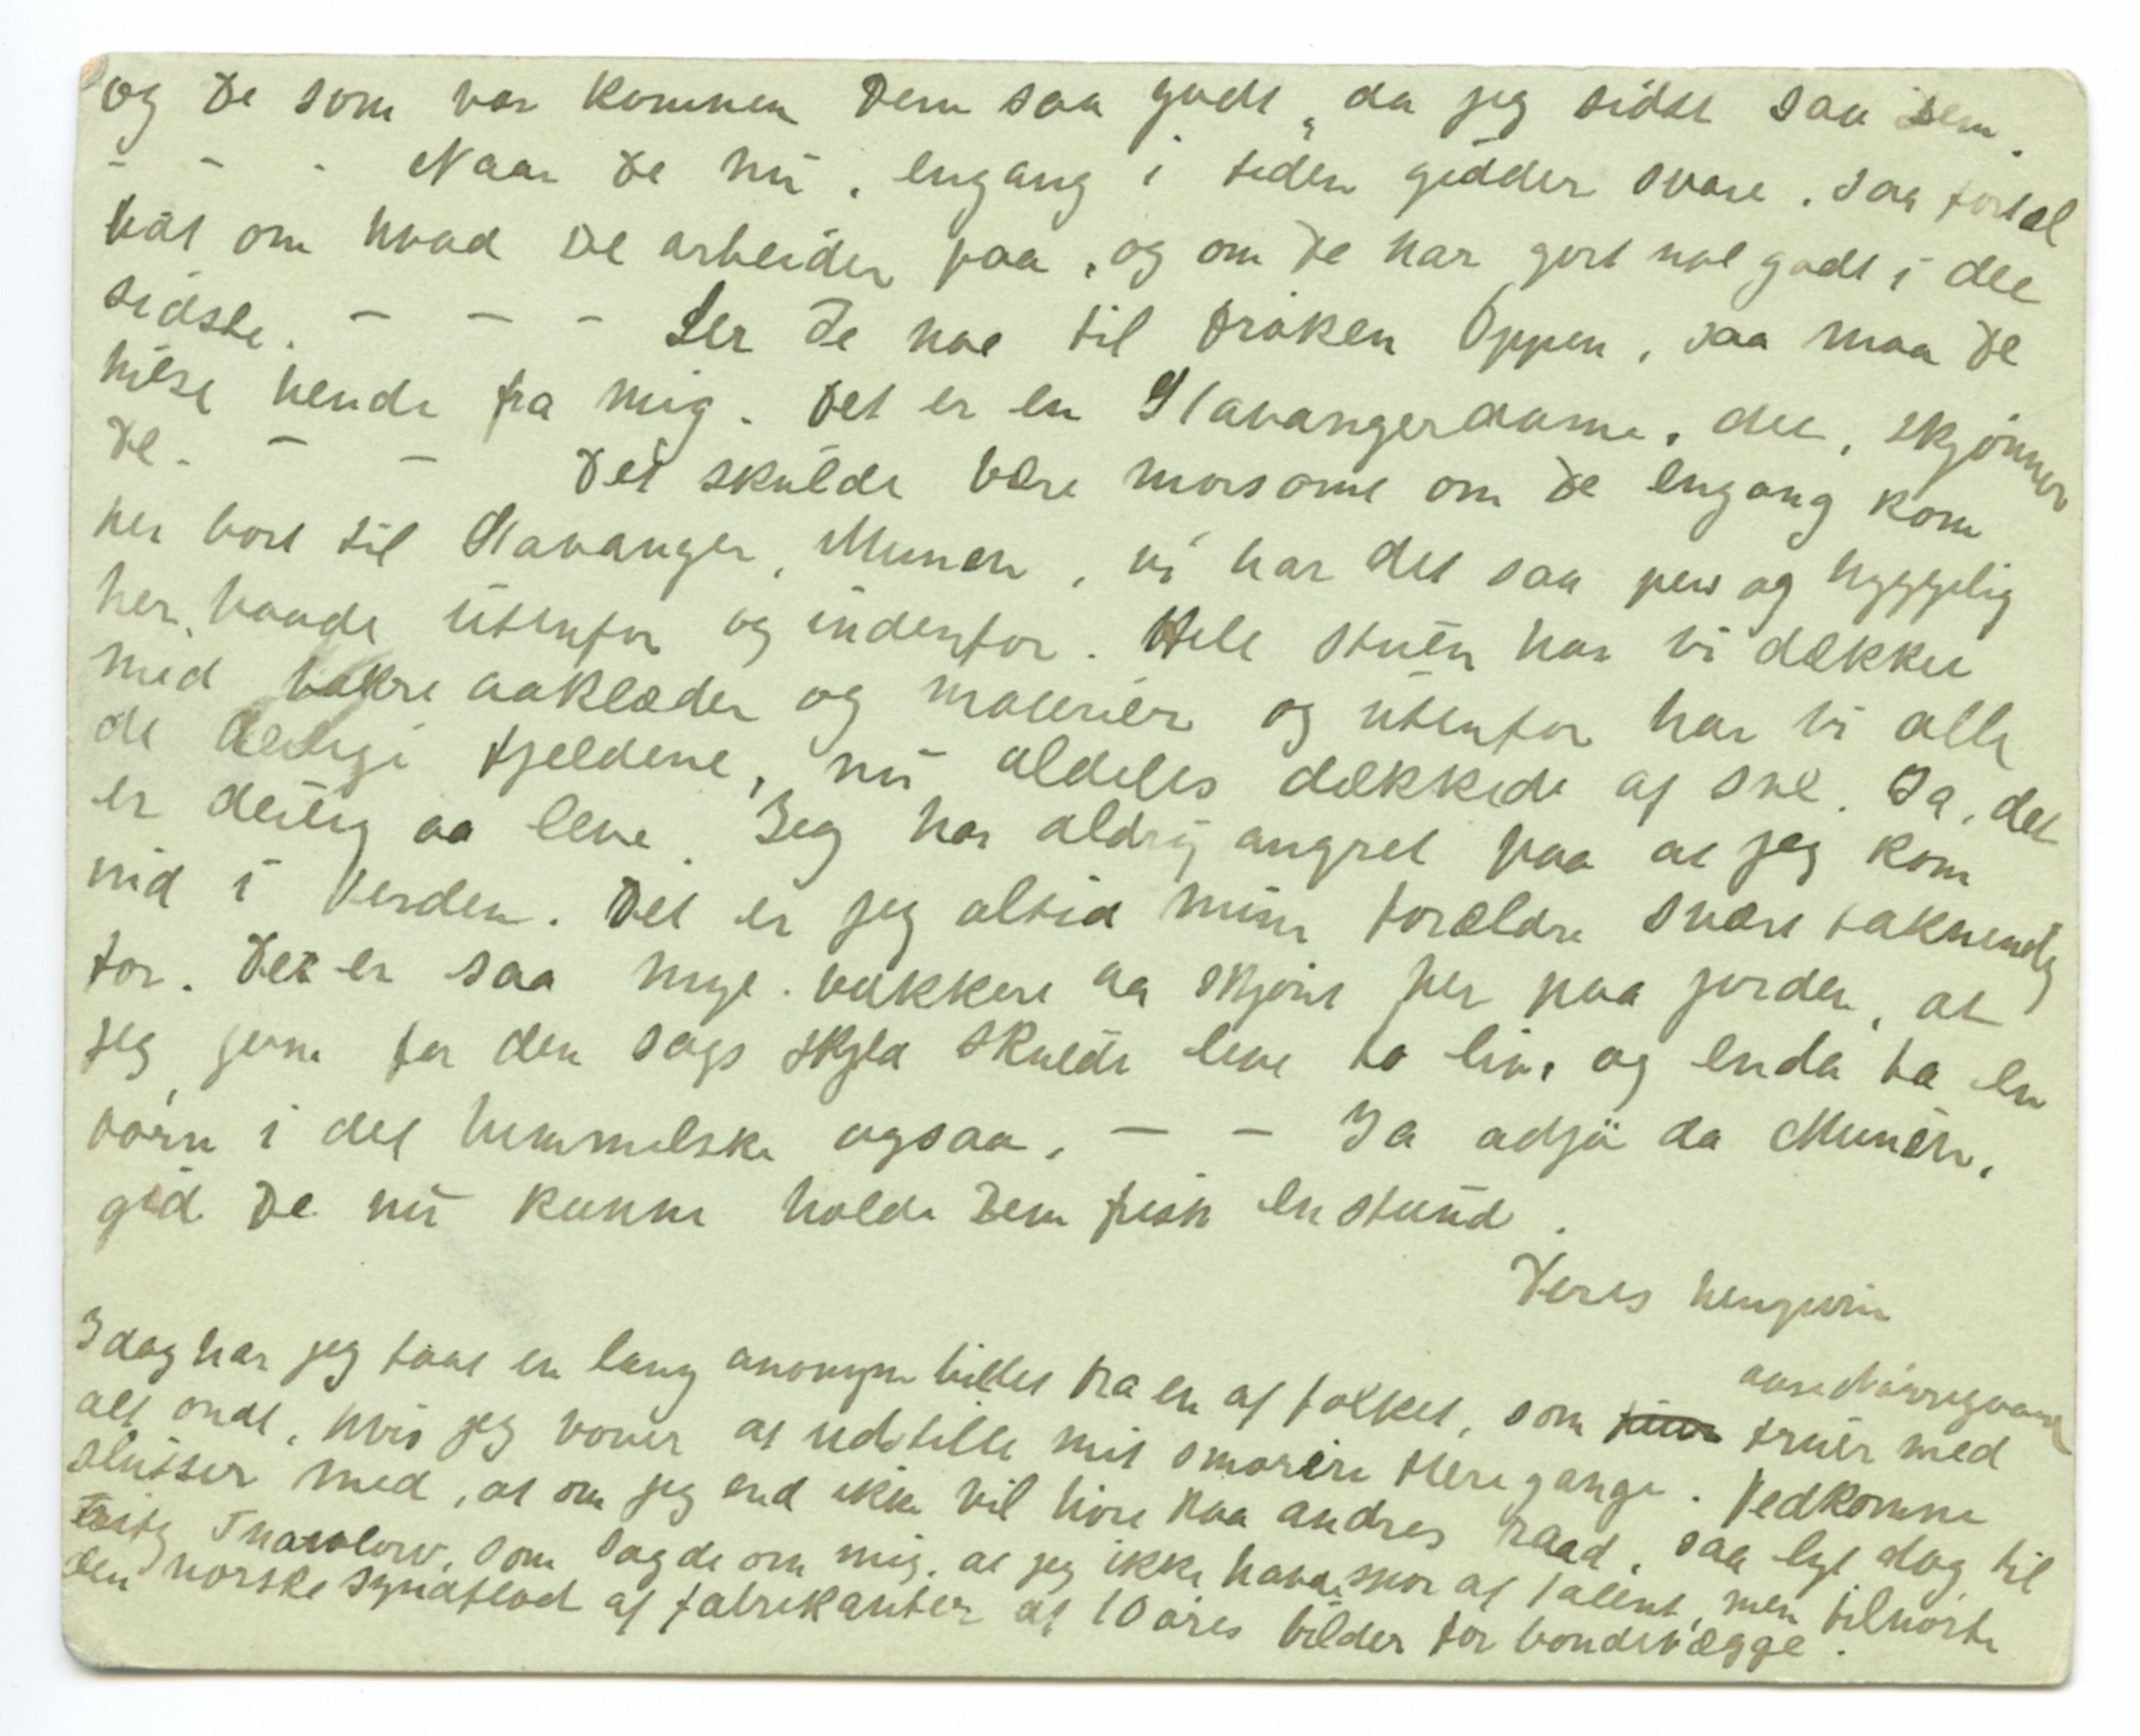 og De som var kommen Dem saa godt, da jeg sidst saa Dem.
- - - Naar De nu, engang i tiden gidder svare, saa fortæl
lidt om hvad De arbeider paa, og om De har gort noe godt i det
sidste. - - - Ser De noe til frøken Oppen, saa maa De
hilse hende fra mig. Det er en Stavangerdame, det, skjønner
De. - - Det skulde være morsomt om De engang kom
her bort til Stavanger, Munch, vi har det saa pent og hyggelig
her, baade utenfor og indenfor. Hele stuen har vi dækket
med vakre aaklæder og malerier og utenfor har vi alle
de deilige fjeldene, nu aldeles dækkede af sne. Ja, det
er deilig aa leve. Jeg har aldrig angret paa at jeg kom
nid i Verden. Det er jeg altid mine forældre svært taknemlig
for. Det er saa mye vakkert aa skjønt her paa jorden, at
jeg gjerne for den sags skyld skulde leve to liv, og enda ta en
tørn i det himmelske ogsaa. - - Ja adjø da Munch,
gid De nu kunne holde Dem frisk en stund.
Deres hengivne
Aase Nørregaard
Idag har jeg faat en lang anonym billet fra en af folket, som truer med
alt ondt, hvis jeg vover at udstille mit smøreri flere gange. Vedkomne
slutter med, at om jeg end ikke vil høre paa andres raad, saa lyt dog til
Fritz Thaulow, som sagde om mig, at jeg ikke havde spor af talent, men tilhørte
den norske syndflod af fabrikanter af 10 øres bilder for bondevægge.